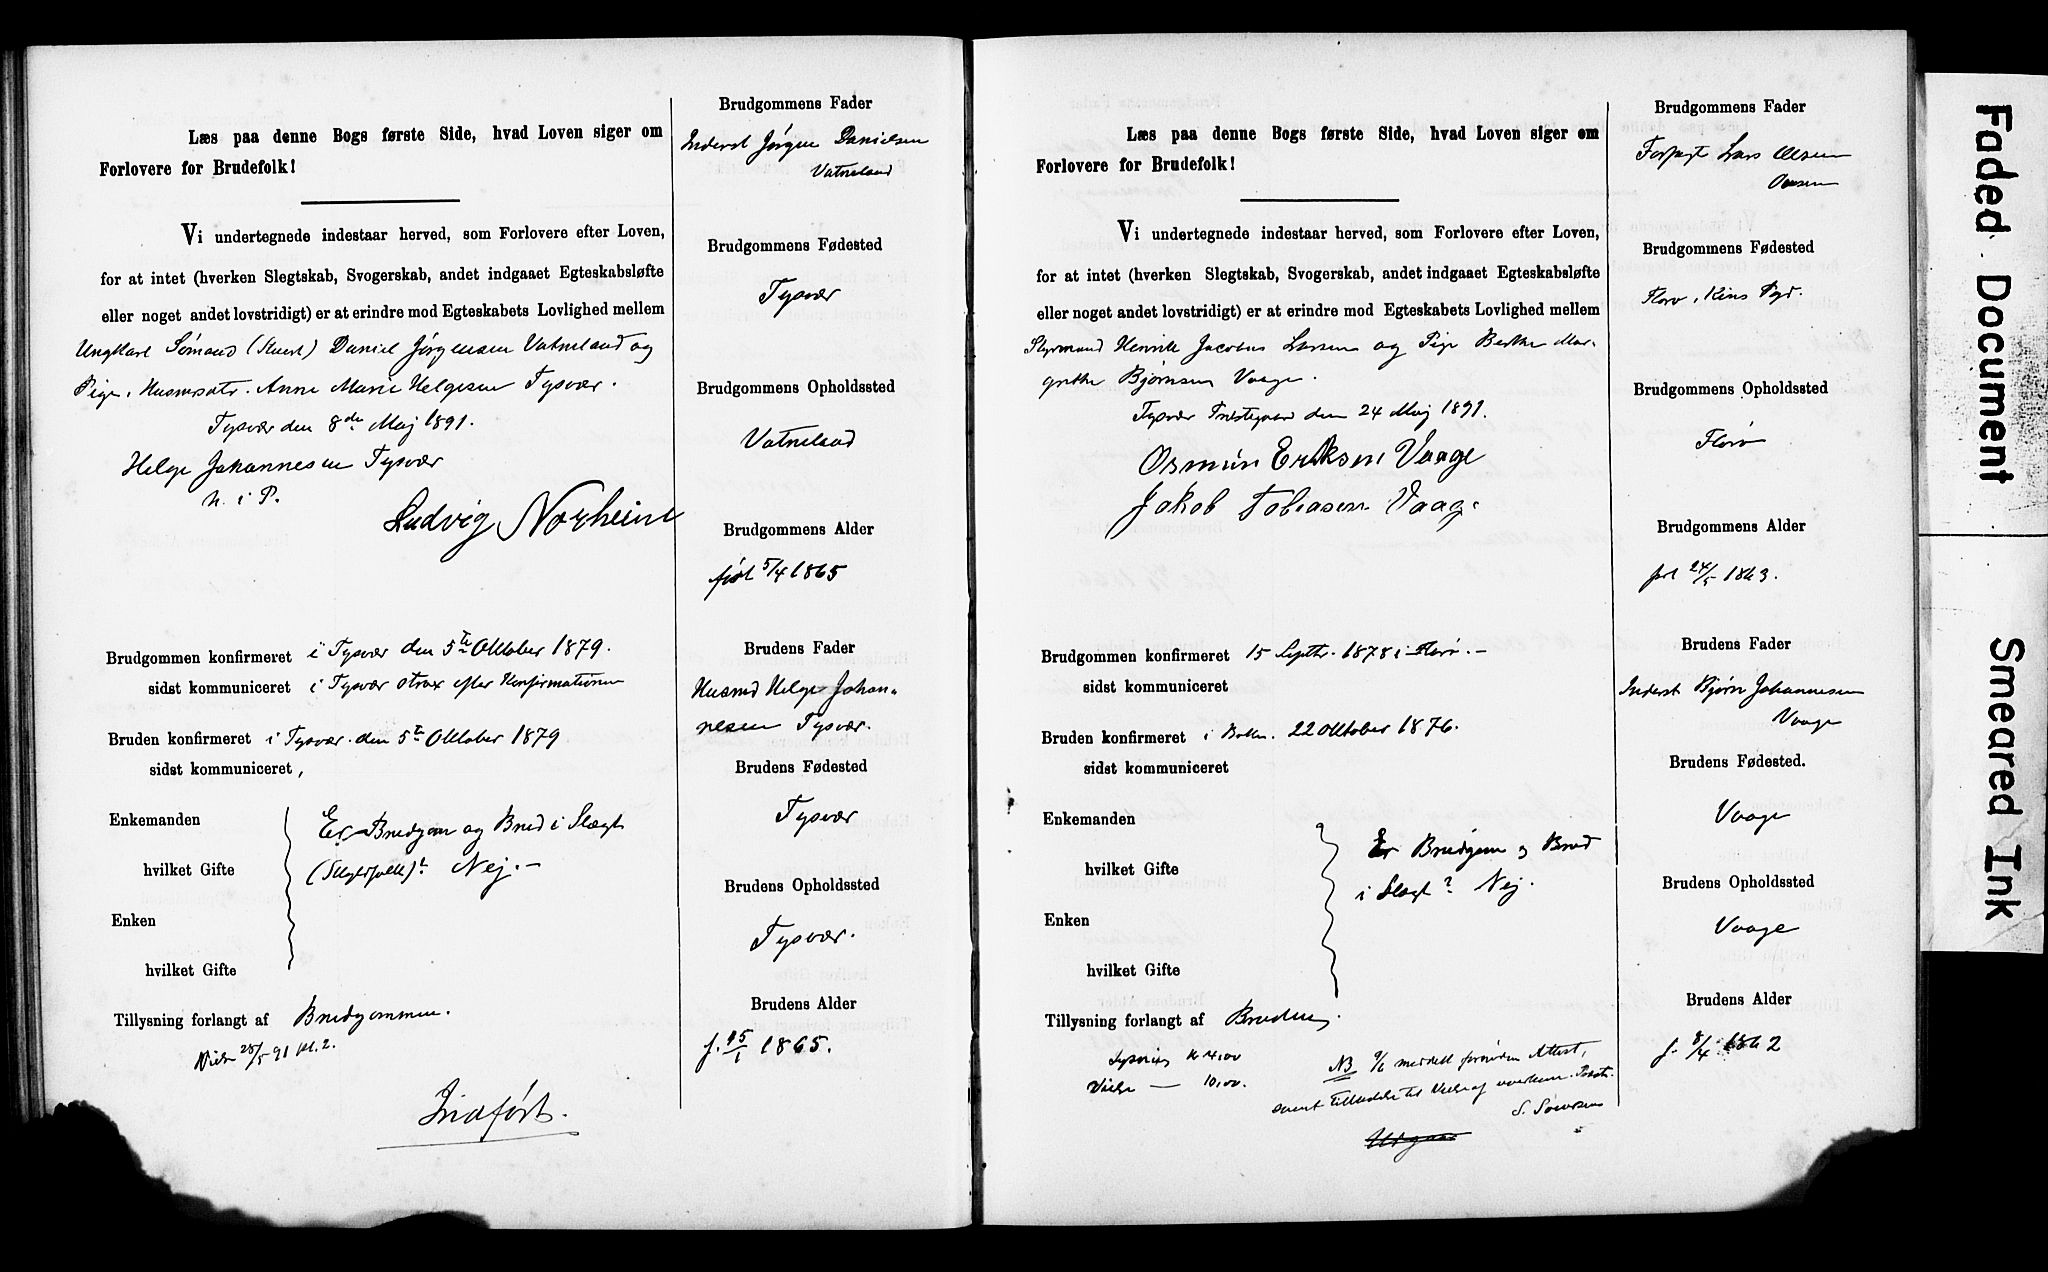 Læs paa denne Bogs første Side, hvad Loven siger om
Forlovere for Brudefolk!
Vi undertegnede indestaar herved, som Forlovere efter Loven,
for at intet (hverken Slegtskab, Svogerskab, andet indgaaet Egteskabsløfte
eller noget andet lovstridigt) er at erindre mod Egteskabets Lovlighed mellem
Ungkarl Sømand (Stuert) Daniel Jørgensen Vatneland og
Pige, Husmsdtr. Anne Marie Helgesen Tysvær.
Tysvær den 8de Maj 1891.
Helge Johannesen Tysvær
m. i P.
Ludvig Norheim
Brudgommen konfirmeret i Tysvær den 5te Oktober 1879.
sidst kommuniceret i Tysvær strax efter Konfirmationen
Bruden konfirmeret i Tysvær den 5te Oktober 1879
sidst kommuniceret,
Enkemanden
hvilket Gifte
Enken
hvilket Gifte
Er Brudgom og Brud i Slægt
(Slegtsfolk)? Nej. —
Tillysning forlangt af Brudgommen.
Viels 28/5 91 Kl. 2.
Indført.
Brudgommens Fader
Inderst Jørgen Danielsen
Vatneland
Brudgommens Fødested
Tysvær
Brudgommens Opholdssted
Vatneland
Brudgommens Alder
født 5/4 1865
Brudens Fader
Husmd Helge Johan-
nesen Tysvær.
Brudens Fødested
Tysvær
Brudens Opholdssted
Tysvær.
Brudens Alder
f. 15/1 1865.
Læs paa denne Bogs første Side, hvad Loven siger om
Forlovere for Brudefolk!
Vi undertegnede indestaar herved, som Forlovere efter Loven,
for at intet (hverken Slegtskab, Svogerskab, andet indgaaet Egteskabsløfte
eller noget andet lovstridigt) er at erindre mod Egteskabets Lovlighed mellem
Styrmand Henrik Jacobus Larsen og Pige Berthe Mar-
grethe Bjørnsen Vaage.
Tysvær Prestegaard den 24 Maj 1891.
Osmun Eriksen Vaage
Jakob Tobiasen Vaag.
Brudgommen konfirmeret 15 Septbr. 1878 i Florø. —
sidst kommuniceret
Bruden konfirmeret i Bokn. 22 Oktober 1876.
sidst kommuniceret
Enkemanden
hvilket Gifte
Enken
hvilket Gifte
Er Brudgom og Brud
i Slægt? Nej.
Tillysning forlangt af Bruden.
Lysning kr 4,00
Vielse — 10,00.
NB 9/6 meddelt fornøden Attest,
samt Tilladelse til Vielse af
S. Sørensen
Brudgommens Fader
Forpagt Lars Olsen
Brudgommens Fødested
Florø, Kins Pgd.
Brudgommens Opholdssted
Florø
Brudgommens Alder
født 24/5 1863.
Brudens Fader
Inderst Bjørn Johannesen
Vaage
Brudens Fødested.
Vaage
Brudens Opholdssted
Vaage
Brudens Alder
f. 8/4 1862
Faded Document
Smeared Ink